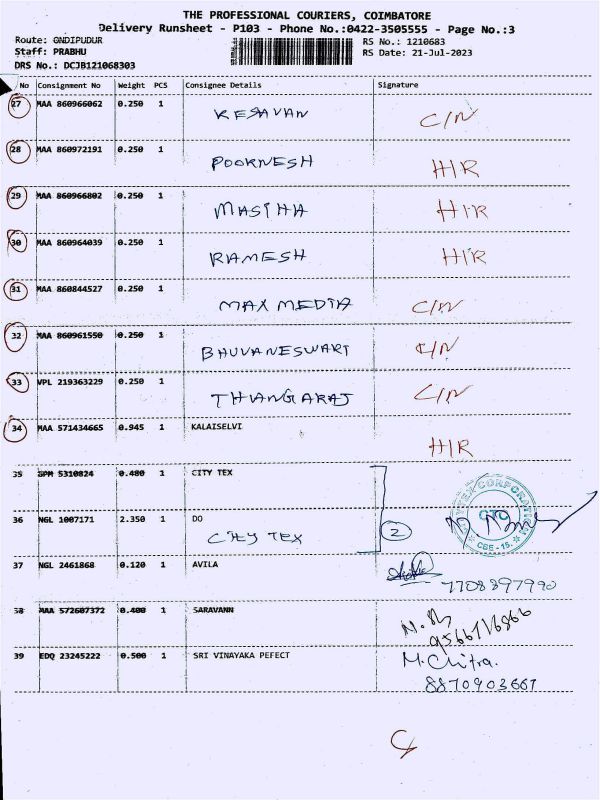 THE PROFESSIONAL COURIERS, COIMBATORE
Delivery Runsheet - P103 - Phone No.:0422-3505555 - Page No.:3
Route: ONDIPUDUR RS No.: 1210683
Staff: PRABHU RS Date: 21-Jul-2023
DRS No.: DCJB121068303
No Consignment No Weight PCS Consignee Details Signature
27 MAA 860966062 0.250 1 KESAVAN C/N
28 MAA 860972191 0.250 1 POORNESH H/R
29 MAA 860966802 0.250 1 MASTHA H/R
30 MAA 860964039 0.250 1 RAMESH H/R
31 MAA 860844527 0.250 1 MAX MEDIA C/N
32 MAA 860961550 0.250 1 BHUVANESWARI C/N
33 VPL 219363229 0.250 1 THANGARAJ C/N
34 MAA 571434665 0.945 1 KALAISELVI H/R
35 GPM 5310824 0.480 1 CITY TEX
36 NGL 1007171 2.350 1 DO
CITY TEX 2
CTC
CBE - 15.
37 NGL 2461868 0.120 1 AVILA
7708397990
38 MAA 572607372 0.400 1 SARAVANN
9566116866
39 EDQ 23245222 0.500 1 SRI VINAYAKA PEFECT M. Chitra.
8870903661